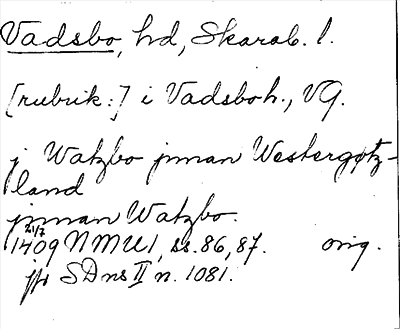 Vadsbo, hd, Skarab. l.
[rubrik:] i Vadsboh., VG.
j Watzbo jnnan Westergøtz-
land
jnnan Watzbo.
21/7
1409 NMU1, ss. 86, 87. orig.
jfr SDns II n. 1081.